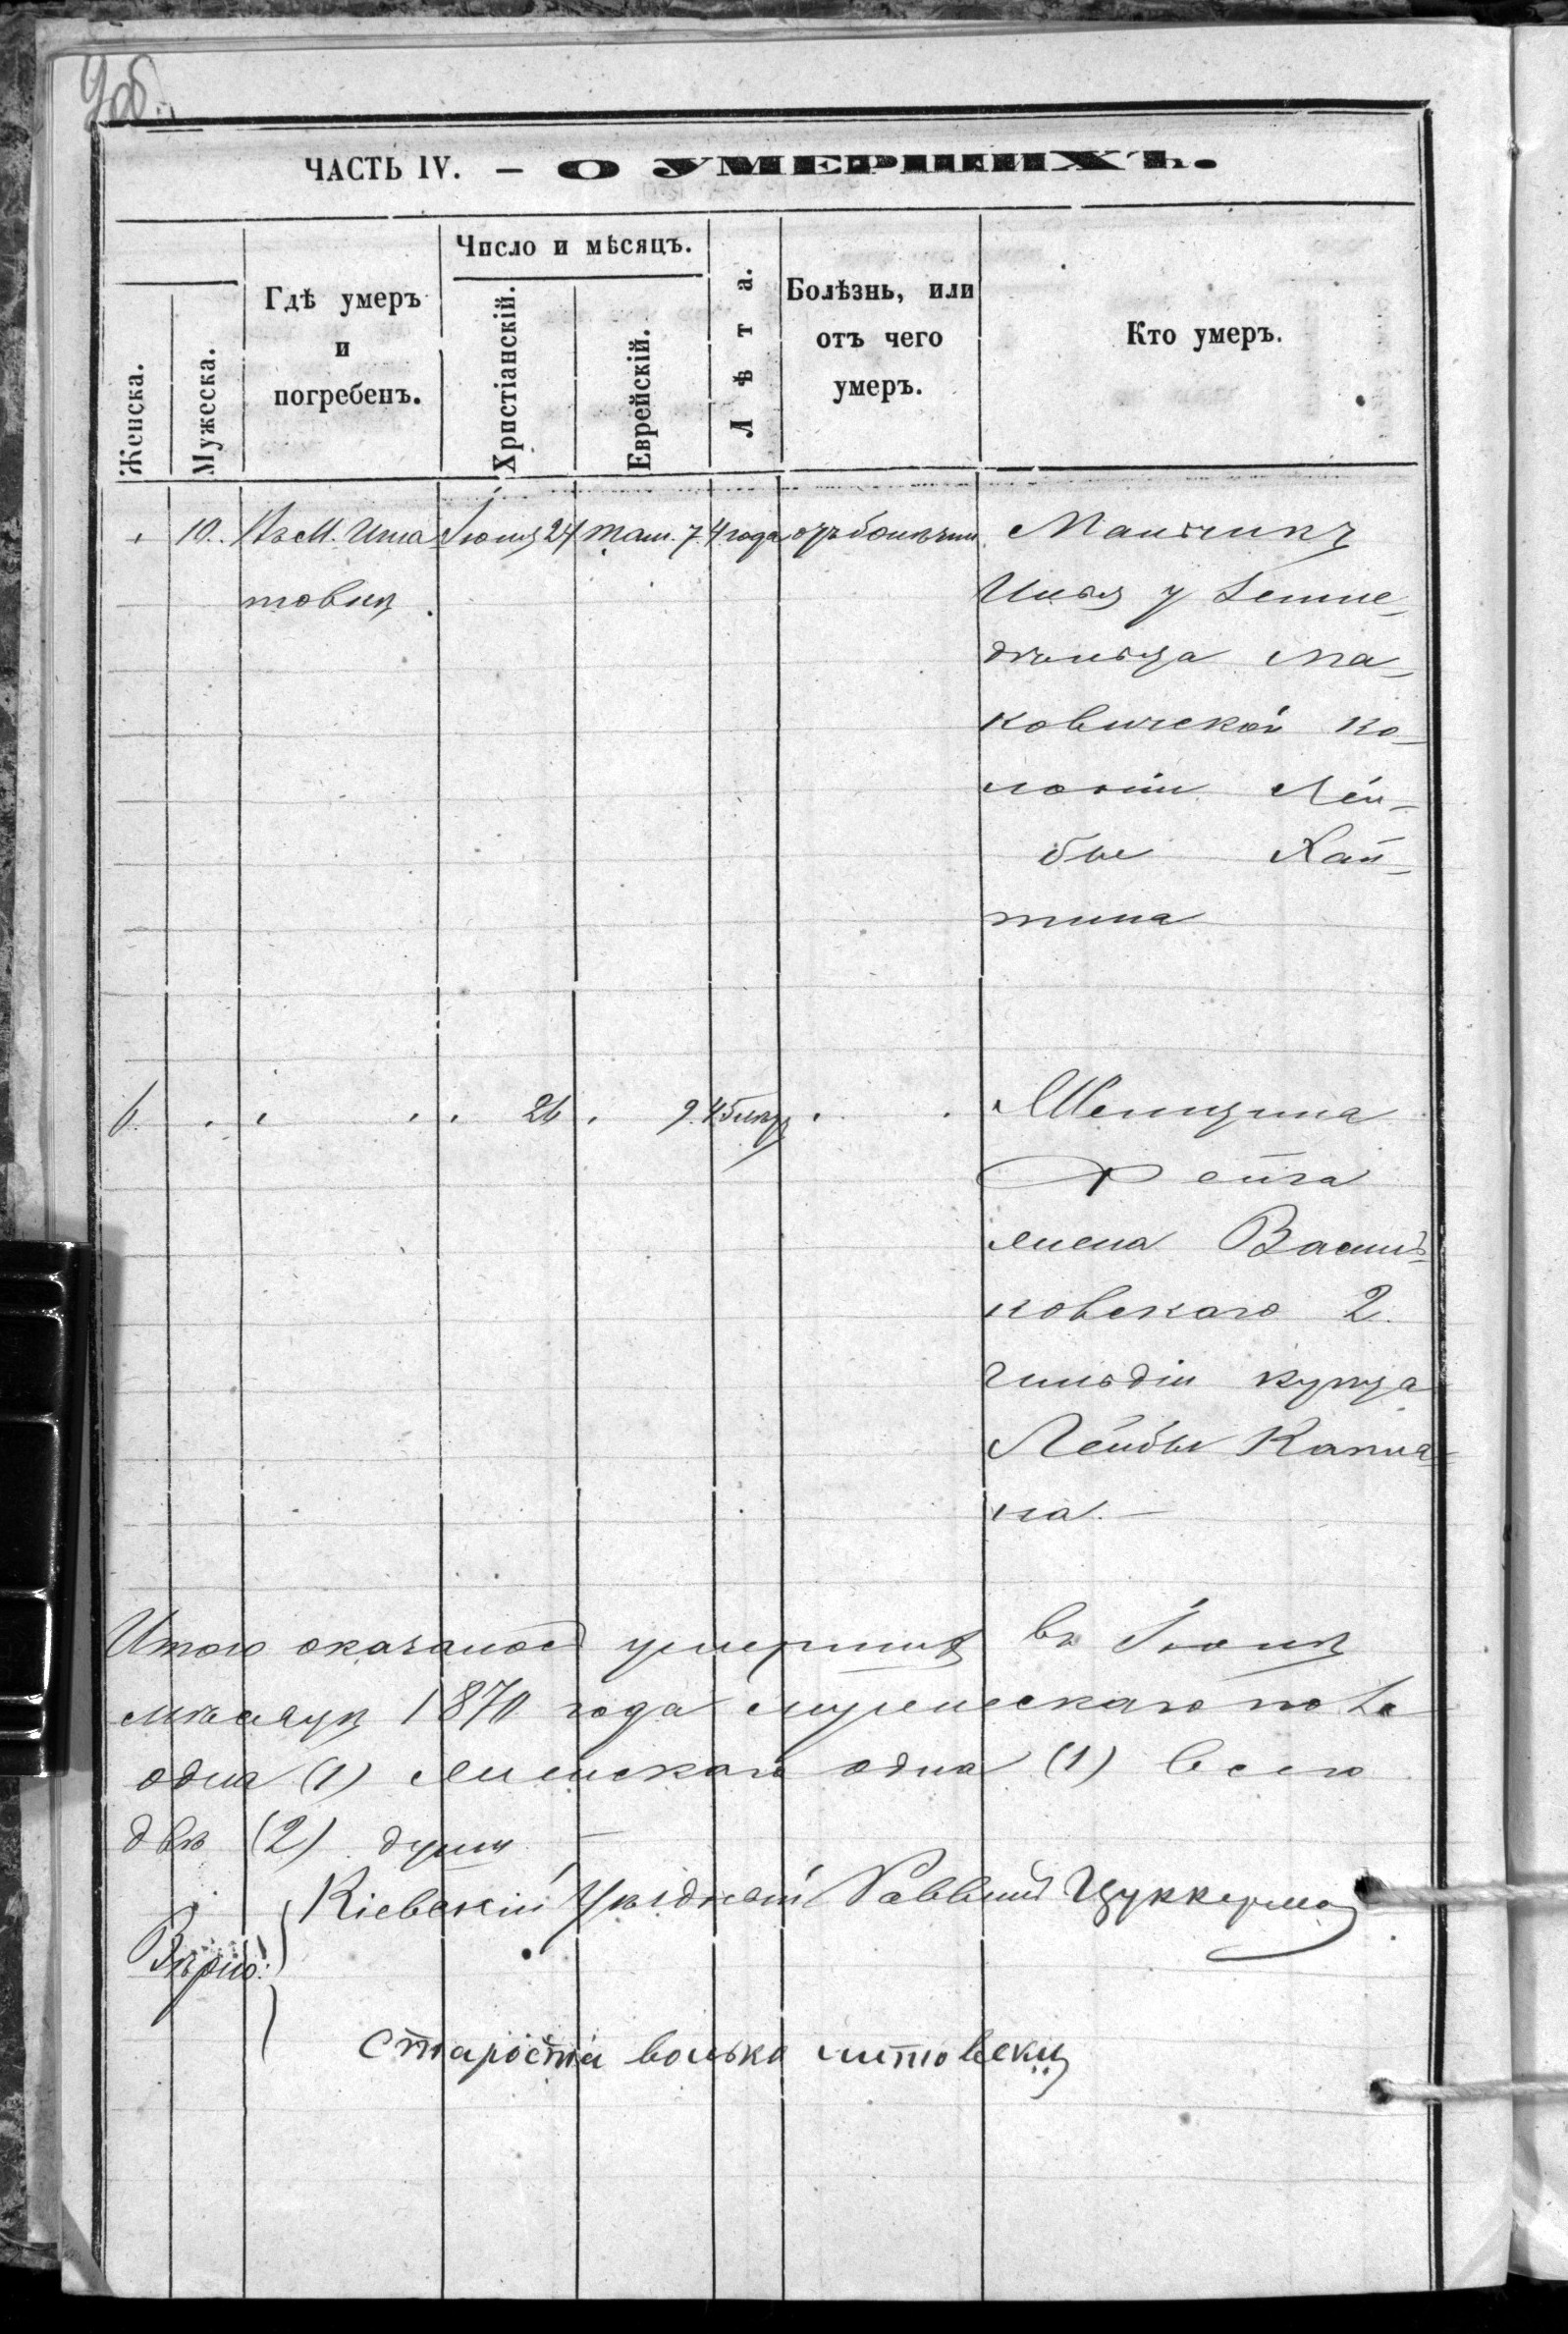 9 об.
ЧАСТЬ IV. — О УМЕРШИХЪ.
Женска.
Мужеска.
Гдѣ умеръ
и
погребенъ.
Число и мѣсяцъ.
Христіанскій.
Еврейскій.
Лѣта.
Болѣзнь, или
отъ чего
умеръ.
Кто умеръ.
10. Въ М. Игна Іюня 24 Там. 7 4 года отъ болѣзни Мальчикъ
товкѣ.
у Земле-
дѣльца Ма-
ковичской ко-
лоніи Лей-
бы Хай-
тина
6. 26 9. 45 лѣтъ Женщина
Фейга
жена Василь-
ковскаго 2.
гильдіи купца
Лейбы Капла-
на. —
Итого оказалось умершихъ въ Іюнѣ
мѣсяцѣ 1870 года мужескаго пола
одна (1) женскаго одна (1) всего
двѣ (2) души —
Кіевскій Уѣздный Раввинъ Цуккерма
Вѣрно:
Староста волько литовски